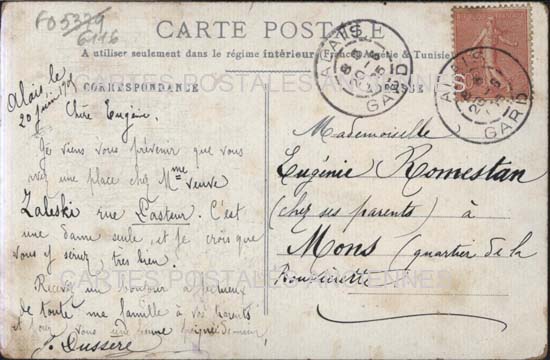 FO 5329
6116
CARTE POSTALE
A utiliser seulement dans le régime intérieur (France, Algérie & Tunisie)
CORRESPONDANCE
ALAIS
GARD
ALAIS
GARD
CARTES POSTALES ANCIENNES
Alais le
20 juin
Chère Eugénie,
Je viens vous prévenir que vous
avez une place chez Mme veuve
Zaleski rue Pasteur. C'est
une dame seule, et je crois que
vous y serez, très bien.
Recevez un bonjour affectueux
de toute ma famille à vos parents
et vous une bonne poignée de main
Dussère
Mademoiselle
Eugénie Romestan
(chez ses parents) à
Mons (quartier de la
CARTES POSTALES ANCIENNES